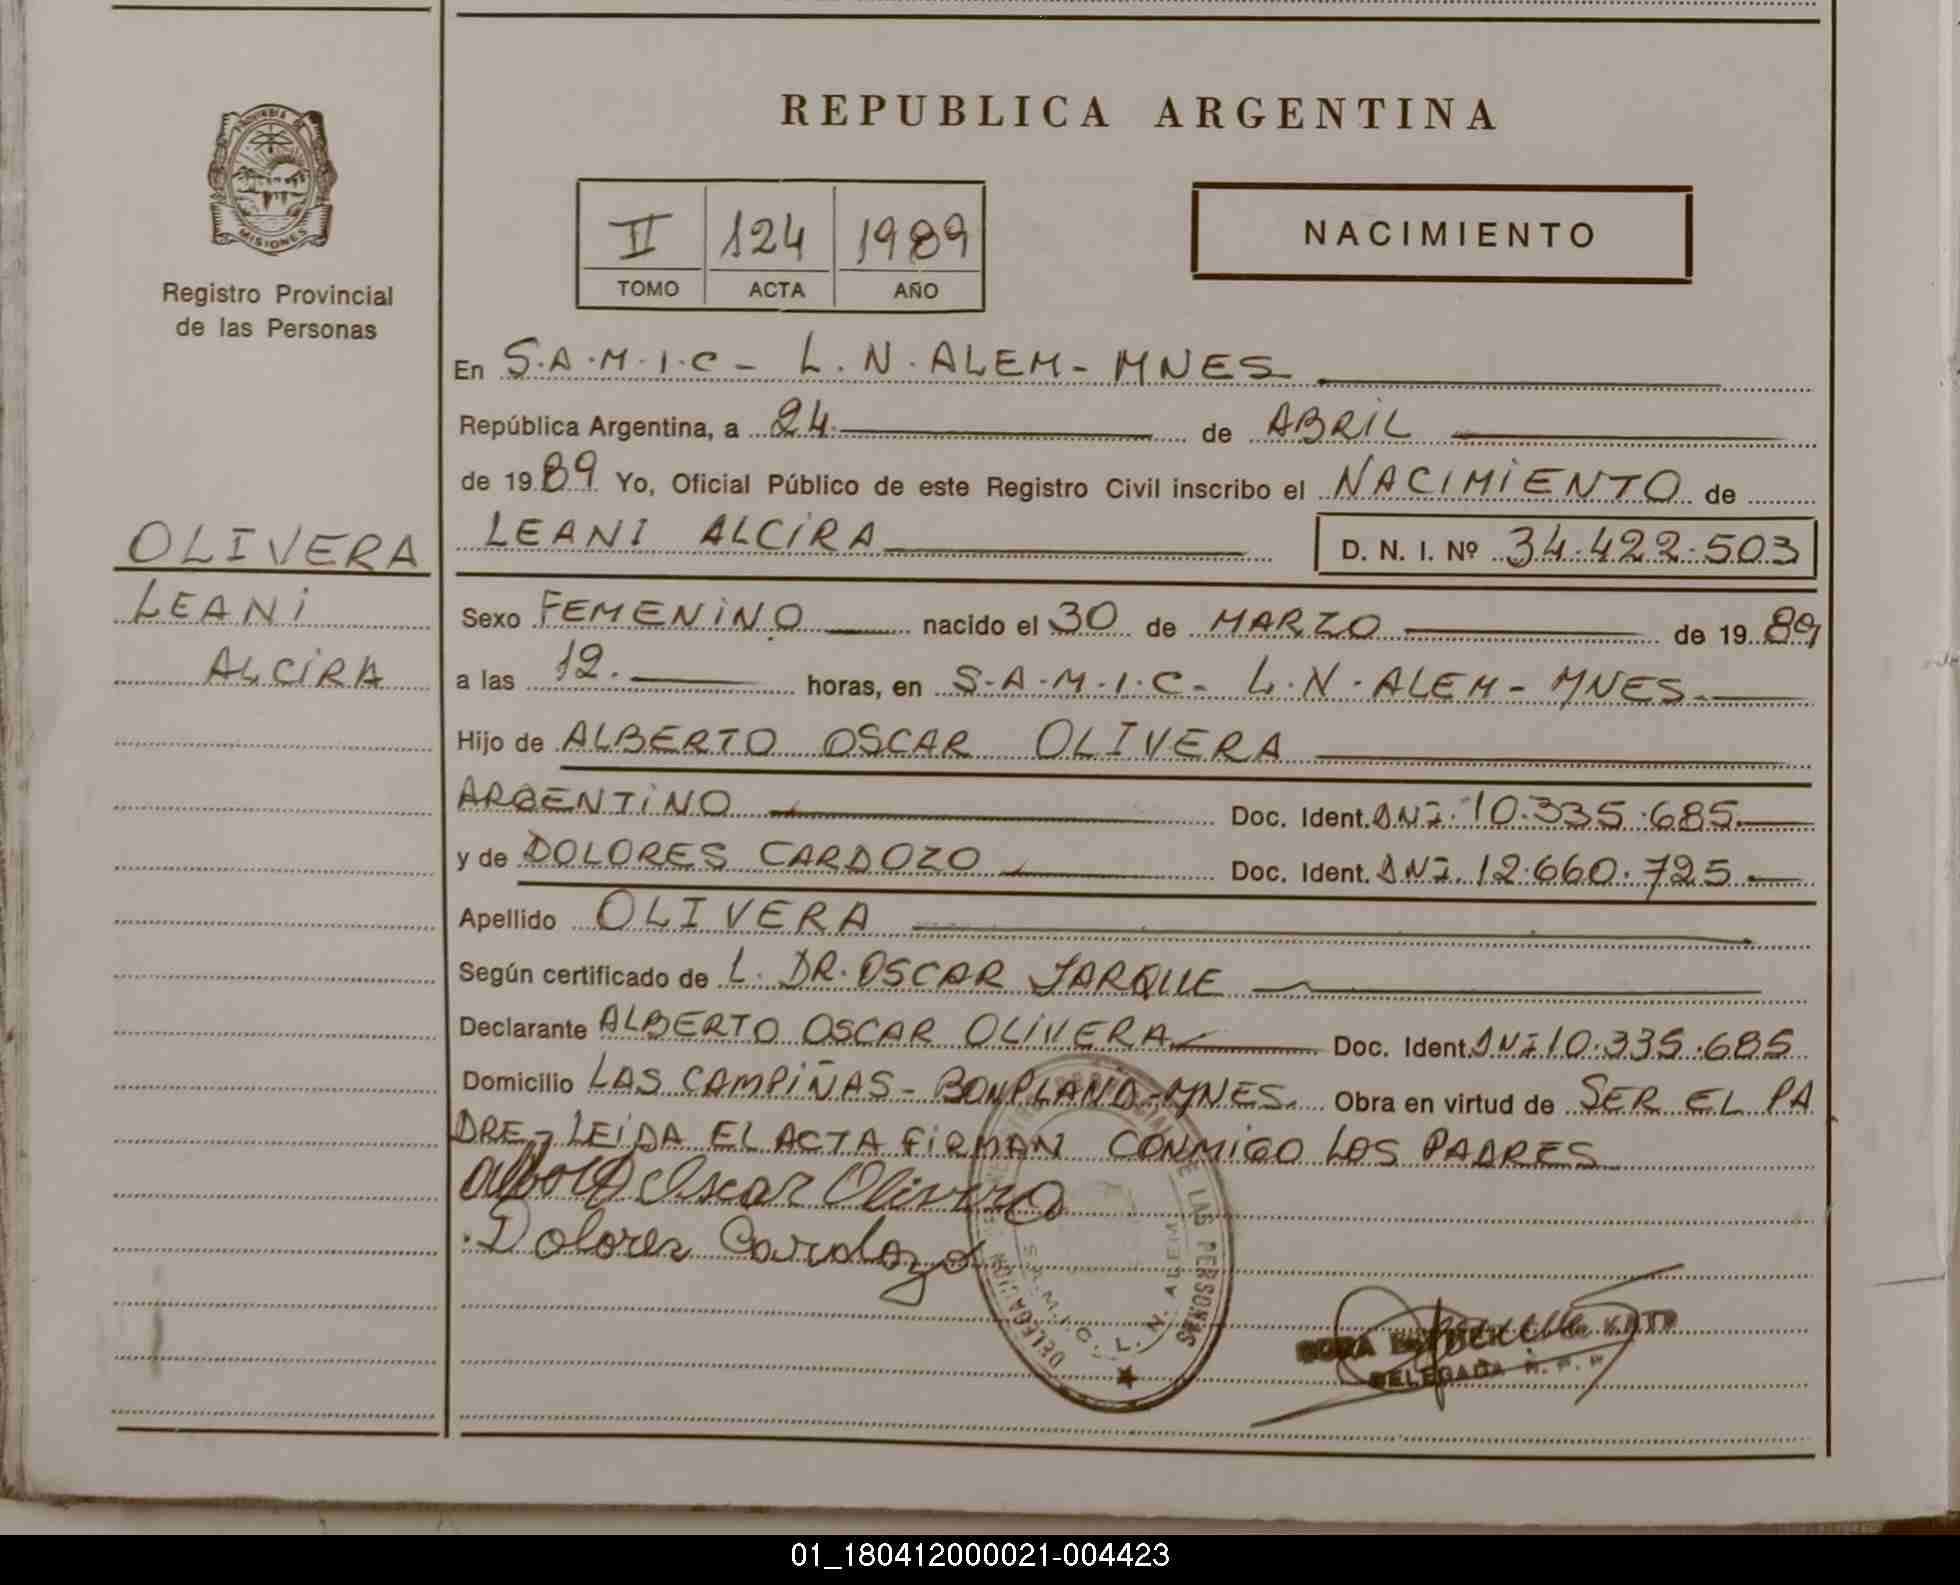 REPUBLICA ARGENTINA
PROVINCIA DE
MISIONES
Registro Provincial
de las Personas
II 124 1989
TOMO ACTA AÑO
NACIMIENTO
En S.A.M.I.C - L.N.ALEM - MNES
República Argentina, a 24 de ABRIL
de 1989 Yo, Oficial Público de este Registro Civil inscribo el NACIMIENTO de
LEANI ALCIRA D. N. I. Nº 34.422.503
OLIVERA
LEANI
ALCIRA
Sexo FEMENINO nacido el 30 de MARZO de 1989
a las 12. horas, en S.A.M.I.C - L.N.ALEM - MNES.
Hijo de ALBERTO OSCAR OLIVERA
ARGENTINO Doc. Ident. DNI. 10.335.685.
y de DOLORES CARDOZO Doc. Ident. DNI. 12.660.725.
Apellido OLIVERA
Según certificado de L. DR. OSCAR JARQUE
Declarante ALBERTO OSCAR OLIVERA Doc. Ident. DNI 10.335.685
Domicilio LAS CAMPIÑAS - BONPLAND - MNES. Obra en virtud de SER EL PA
DRE - LEIDA EL ACTA FIRMAN CONMIGO LOS PADRES
Alberto Oscar Olivera
Dolores Cardozo
DE LAS PERSONAS
DELEGACION
S.A.M.I.C. L. N. ALEM
DELEGADA
01_180412000021-004423